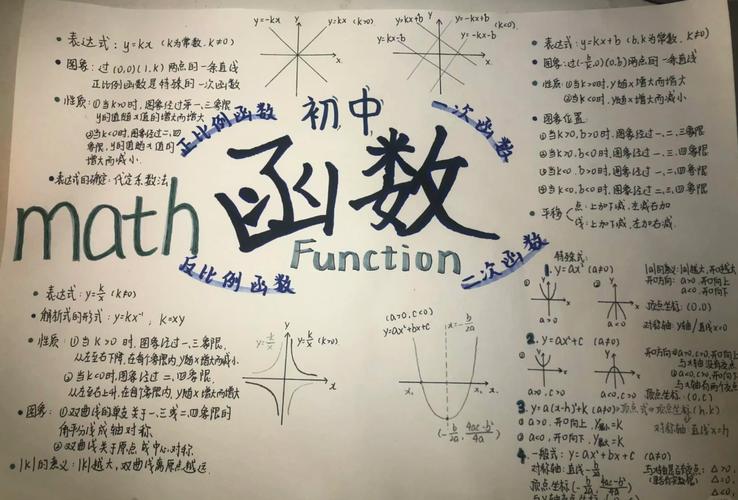 y=-kx
y=kx (k>0)
y=kx+b
y=-kx+b
(k<0)
y=kx-b
y=-kx-b
y
x
y
x
• 表达式: y=kx (k为常数, k≠0)
• 图象: 过(0,0)(1,k)两点的一条直线
正比例函数是特殊的一次函数
• 性质: ①当k>0时, 图象经过第一、三象限
y的值随x值的增大而增大
②当k<0时, 图象经过二、四
象限, y的值随x值的
增大而减小.
• 表达式的确定: 代定系数法
• 表达式: y=kx+b (b,k为常数, k≠0)
• 图象: 过(-b/k,0)(0,b)两点的一条直线
• 性质: ①当k>0时, y随x增大而增大
②当k<0时, y随x增大而减小
• 图象位置
①当k>0, b>0时, 图象经过一、二、三象限
②当k>0, b<0时, 图象经过一、三、四象限
③当k<0, b>0时, 图象经过一、二、四象限
④当k<0, b<0时, 图象经过二、三、四象限
• 平移
点: 上加下减, 左减右加
线: 上加下减, 左加右减.
正比例函数
初中
一次函数
函数
math
Function
反比例函数
二次函数
• 表达式: y=k/x (k≠0)
• 解析式的形式: y=kx⁻¹, k=xy
• 性质: ①当k>0时, 图象经过一、三象限,
从左至右下降, 在每个象限内, y随x增大而减小.
②当k<0时, 图象经过二、四象限,
从左至右上升, 在每个象限内, y随x增大而增大
• 图象: ①双曲线的两支关于一、三或二、四象限的
角平分线成轴对称
②双曲线关于原点成中心对称.
• |k|的意义: |k|越大, 双曲线离原点越远.
y=k/x
y
y=k/x (k>0)
x
(a>0, c<0)
y=ax²+bx+c
x=-b/2a
x₁
x₂
x
(-b/2a, 4ac-b²/4a)
特殊式:
1. y=ax² (a≠0)
a>0
a<0
|a|的意义: |a|越大, 开口越小
开口方向: a>0, 开口向上
a<0, 开口向下
顶点坐标: (0,0)
对称轴: y轴/直线x=0
2. y=ax²+c (a≠0)
a>0, c>0
a<0, c>0
与x轴没有交点
与x轴有两个交点
顶点坐标: (0,c)
3. y=a(x-h)²+k (a≠0) 顶点式 顶点坐标(h,k)
①a>0, 开口向上, y最小=k
②a<0, 开口向下, y最大=k
对称轴 直线x=h
4. 一般式: y=ax²+bx+c (a≠0)
对称轴: 直线-b/2a
顶点坐标(-b/2a, 4ac-b²/4a)
与x轴是否有交点: △>0
△=0